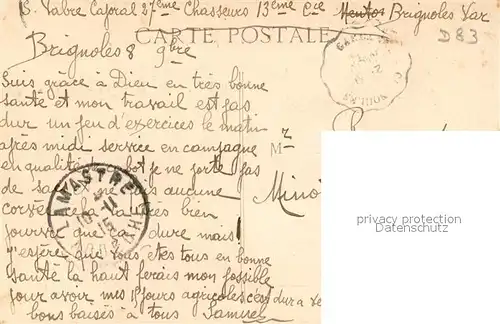 S. Vabre Caporal 27ème Chasseurs 13ème Cie Menton Brignoles Var
D83
CARTE POSTALE
Brignoles 8 9bre
Suis grâce à Dieu en très bonne
santé et mon travail est pas
dur un peu d'exercices le matin
après midi service en campagne
en qualité
je ne porte pas
de sac
aucune
corvée
très bien
pourvu que
dure mais
j'espère que vous êtes tous en bonne
santé la haut ferais mon possible
pour avoir mes 15 jours agricoles
bons baisés à tous Samuel
Mr
Mino
LAMASTRE
privacy protection
messages will not be
displayed